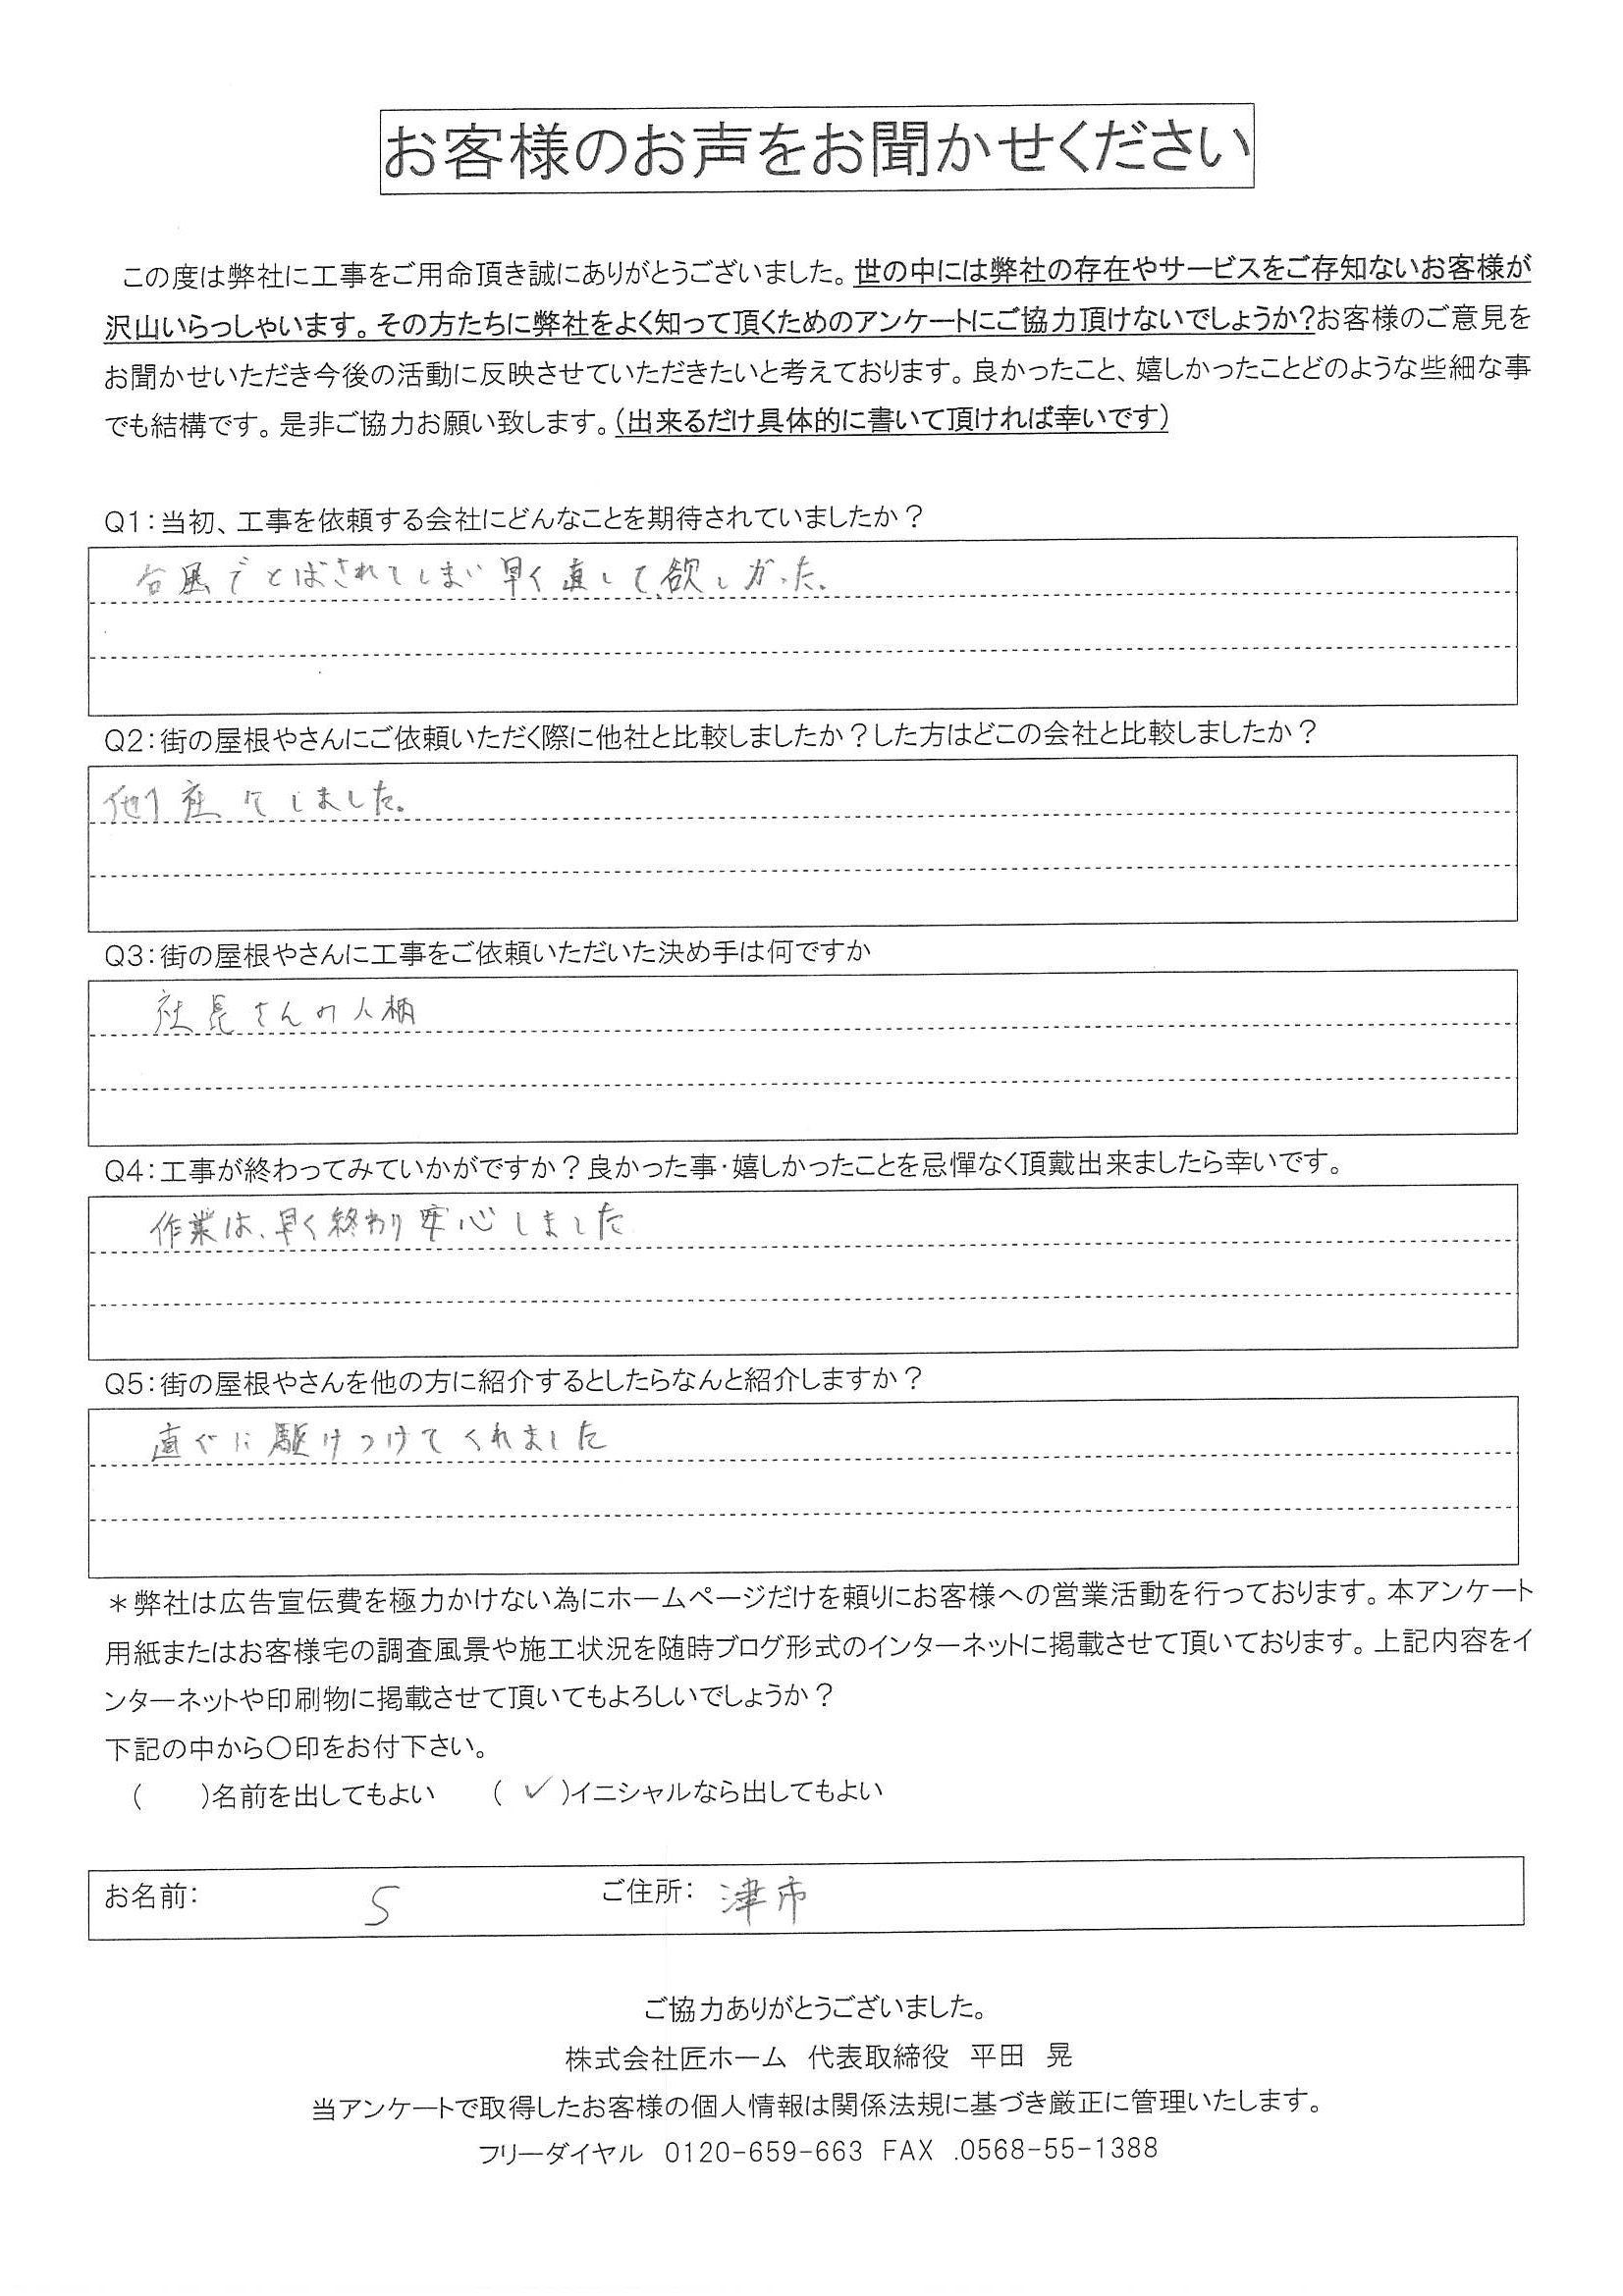 お客様のお声をお聞かせください
この度は弊社に工事をご用命頂き誠にありがとうございました。世の中には弊社の存在やサービスをご存知ないお客様が
沢山いらっしゃいます。その方たちに弊社をよく知って頂くためのアンケートにご協力頂けないでしょうか?お客様のご意見を
お聞かせいただき今後の活動に反映させていただきたいと考えております。良かったこと、嬉しかったことどのような些細な事
でも結構です。是非ご協力お願い致します。(出来るだけ具体的に書いて頂ければ幸いです)
Q1:当初、工事を依頼する会社にどんなことを期待されていましたか?
台風でとばされてしまい早く直して欲しかった。
Q2:街の屋根やさんにご依頼いただく際に他社と比較しましたか?した方はどこの会社と比較しましたか?
他1社でしました。
Q3:街の屋根やさんに工事をご依頼いただいた決め手は何ですか
社長さんの人柄
Q4:工事が終わってみていかがですか?良かった事・嬉しかったことを忌憚なく頂戴出来ましたら幸いです。
作業は、早く終わり安心しました
Q5:街の屋根やさんを他の方に紹介するとしたらなんと紹介しますか?
直ぐに駆けつけてくれました
*弊社は広告宣伝費を極力かけない為にホームページだけを頼りにお客様への営業活動を行っております。本アンケート
用紙またはお客様宅の調査風景や施工状況を随時ブログ形式のインターネットに掲載させて頂いております。上記内容をイ
ンターネットや印刷物に掲載させて頂いてもよろしいでしょうか?
下記の中から〇印をお付下さい。
(　　)名前を出してもよい　(✓)イニシャルなら出してもよい
お名前: S　ご住所: 津市
ご協力ありがとうございました。
株式会社匠ホーム 代表取締役 平田 晃
当アンケートで取得したお客様の個人情報は関係法規に基づき厳正に管理いたします。
フリーダイヤル 0120-659-663 FAX .0568-55-1388